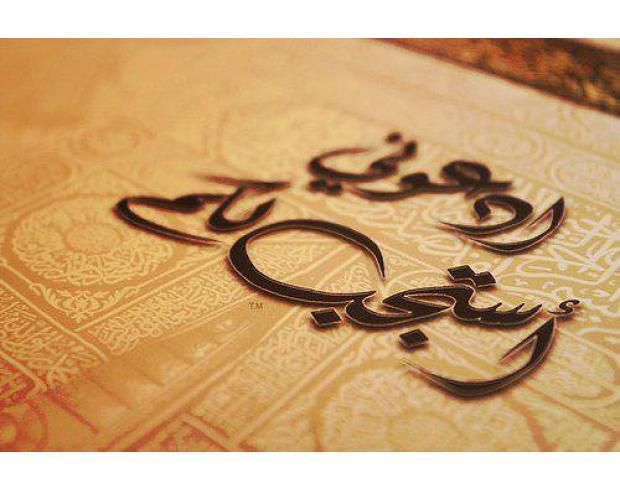 ادعوني
أستجب لكم
TM